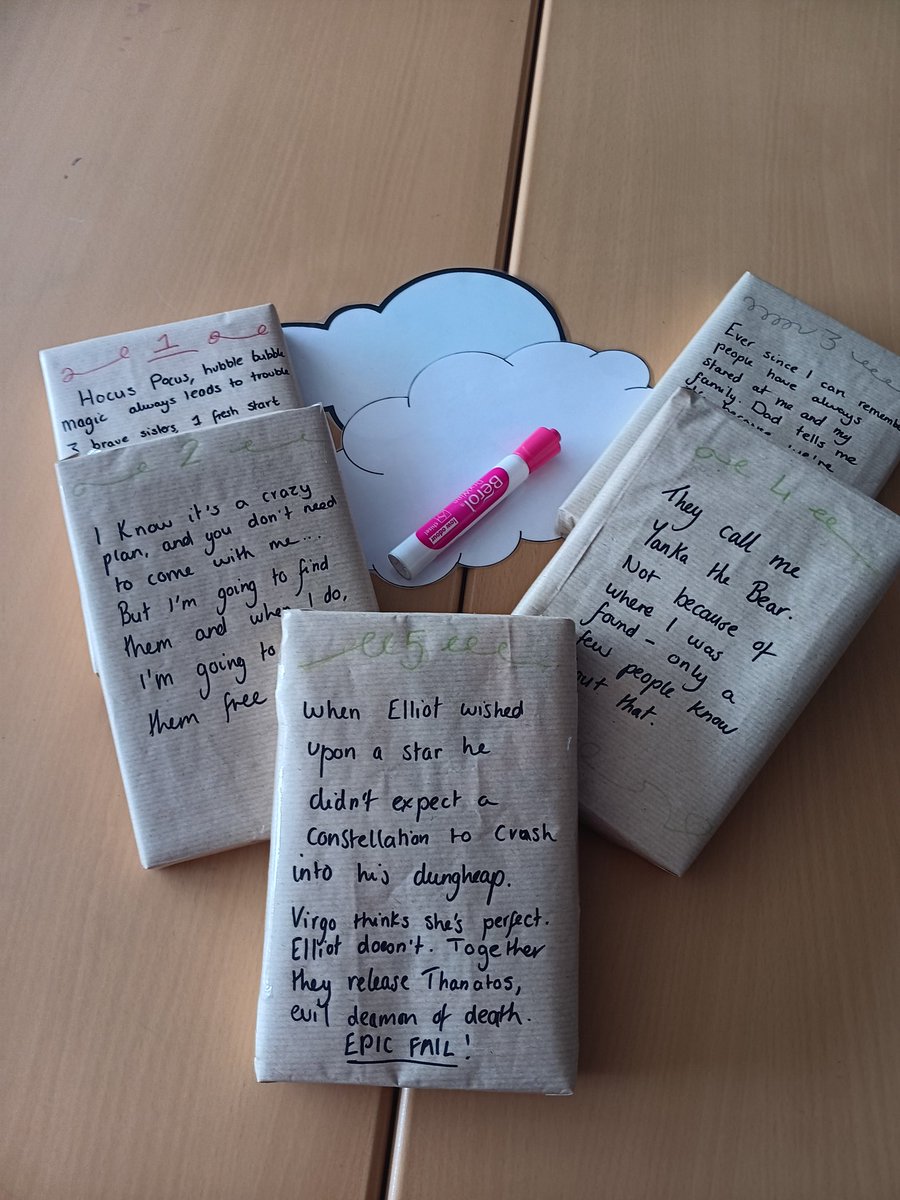 1
Hocus Pocus, hubble bubble
magic always leads to trouble
3 brave sisters, 1 fresh start
2
I know it's a crazy
plan, and you don't need
to come with me...
But I'm going to find
them and when I do,
I'm going to
them free
3
Ever since I can remember
people have always
stared at me and my
family. Dad tells me
because we're
4
They call me
Yanka the Bear.
Not because of
where I was
found - only a
few people know
that.
5
When Elliot wished
upon a star he
didn't expect a
constellation to crash
into his dungheap.
Virgo thinks she's perfect.
Elliot doesn't. Together
they release Thanatos,
evil deamon of death.
EPIC FAIL!
Berol